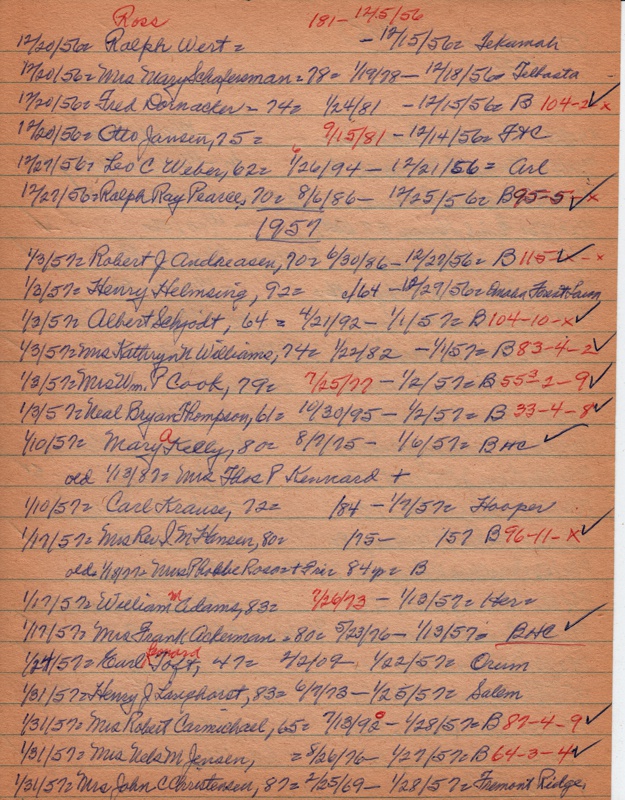 Ross 181- 12/5/56
12/20/56= Ralph Wert = - 12/15/56= Tekamah
12/20/56= Mrs Mary Schafersman = 78= 1/19/78- 12/18/56= Telbasta
12/20/56= Fred Dornacker = 74= 1/24/81 - 12/15/56= B 104-2-x
12/20/56= Otto Jansen, 75= 9/15/81 - 12/14/56=
12/27/56= Leo C Weber, 62= 9/26/94 - 12/21/56= Arl
12/27/56= Ralph Ray Pearce, 70= 8/6/86- 12/25/56= B 95-5-x
1957
1/3/57= Robert J Andreasen, 70= 6/30/86- 12/27/56= B 115 - x
1/3/57= Henry Helmsing, 92= /64 - 12/29/56= Omaha Forest Lawn
1/3/57= Albert Schjodt, 64= 4/21/92- 1/1/57= B 104-10-x
1/3/57= Mrs Kathryn N Williams, 74= 1/22/82 - 1/1/57= B 83-4-2
1/3/57= Mrs Wm. P Cook, 79= 7/25/77 - 1/2/57= B 55³-2-9
1/3/57= Neal Bryan Thompson, 61= 10/30/95- 1/2/57= B 33-4-8
1/10/57= Mary a Kelly, 80= 8/7/75- 1/6/57= BHC
old 1/13/87= Mrs Thos P Kennard +
1/10/57= Carl Krause, 72= /84 - 1/7/57= Hooper
1/17/57= Mrs Rev I M Hansen, 80= /75- /57 B 96-11-x
old= 1/18/77= Mrs Phobbe 84yr = B
1/17/57= William m Adams, 83= 7/26/73 - 1/13/57= Her=
1/17/57= Mrs Frank Ackerman = 80= 5/23/76- 1/13/57= BHC
1/24/57= Earl Toft, 47= 2/2/09- 1/22/57= Orum
1/31/57= Henry J Laaphorst, 83= 6/7/73- 1/25/57= Salem
1/31/57= Mrs Robert Carmichael, 65= 7/13/90- 1/28/57= B 87-4-9
1/31/57= Mrs Nels M Jensen, = 8/26/76- 1/27/57= B 64-3-4
1/31/57= Mrs John C Christensen, 87= 2/25/69- 1/28/57= Fremont Ridge,